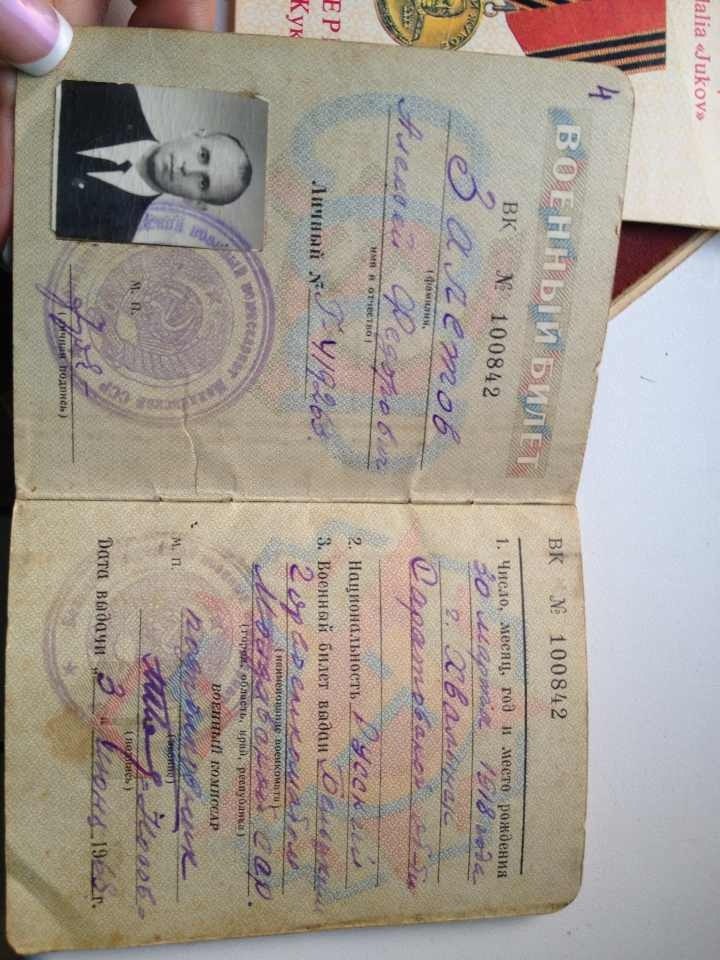 4
ВОЕННЫЙ БИЛЕТ
ВК № 100842
Заметов
(фамилия,
Алексей Федорович
имя и отчество)
Личный № Г-419203
М. П.
(личная подпись)
ВК № 100842
1. Число, месяц, год и место рождения
30 марта 1918 года
г. Хвалынск
Саратовской обл.
2. Национальность Русский
3. Военный билет выдан
Горвоенкоматом
(наименование военкомата)
Молдавской ССР.
(город, область, край, республика)
ВОЕННЫЙ КОМИССАР
М. П.
подполковник
(звание)
(подпись)
Дата выдачи „3" июня 1965 г.
dalia «Jukov»